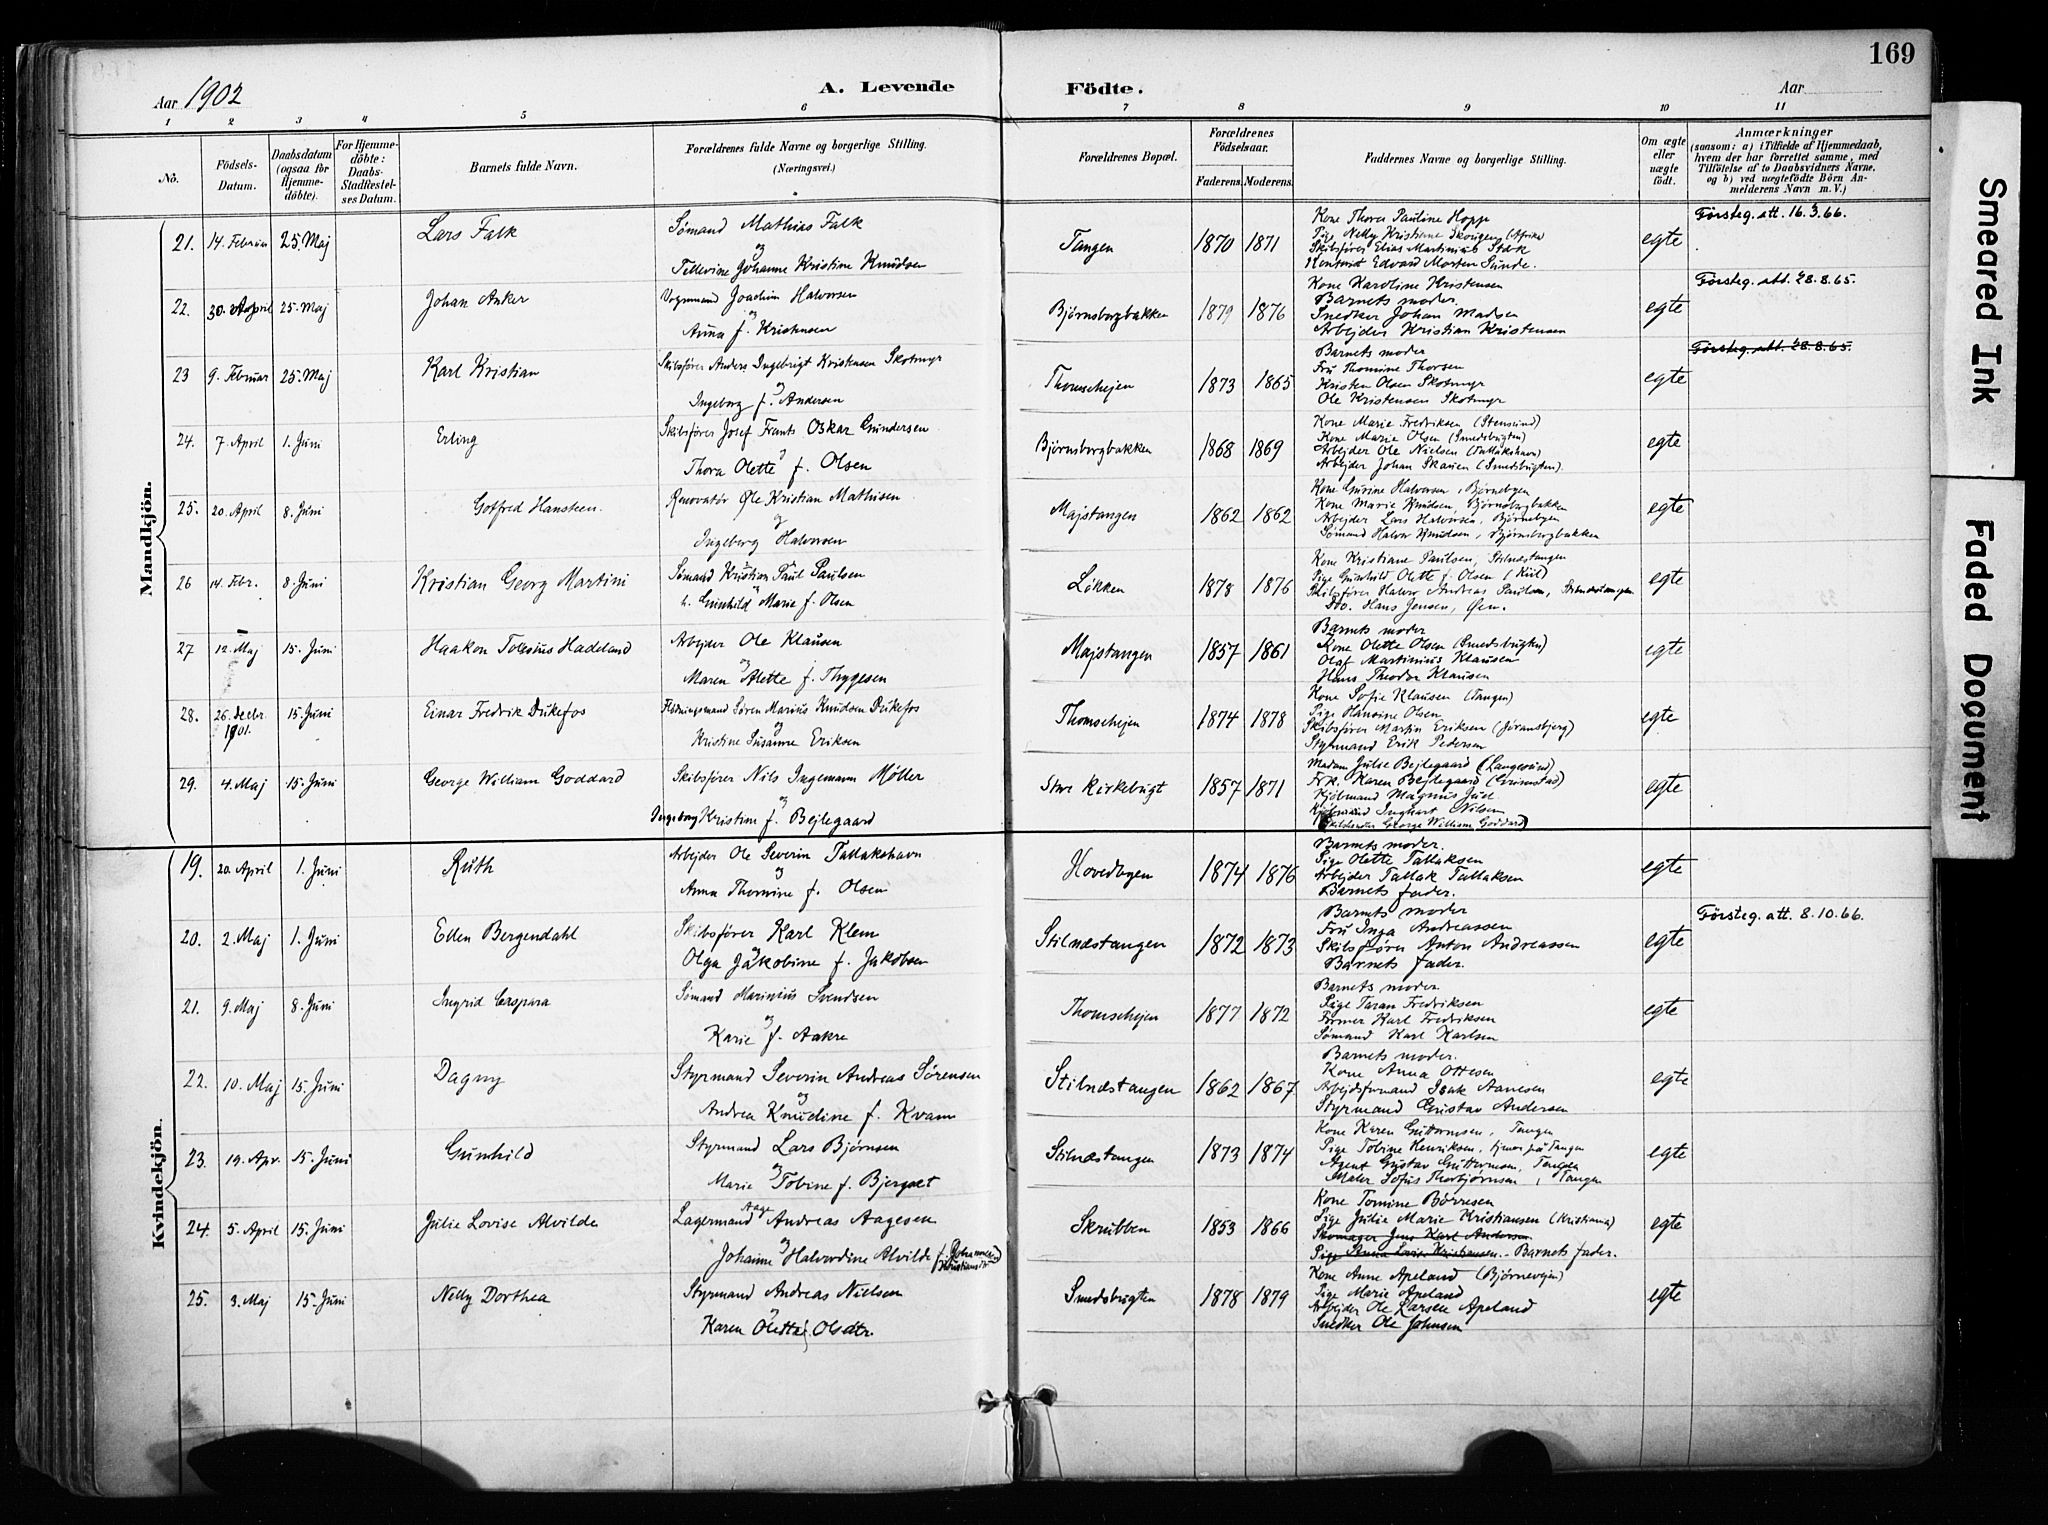 169
Aar 1902
A. Levende
Födte.
Aar
1 2 3 4 5 6 7 8 9 10 11
No.
Födsels-
Datum.
Daabsdatum
(ogsaa for
Hjemme-
döbte).
For Hjemme-
döbte:
Daabs-
Stadfestel-
ses Datum.
Barnets fulde Navn.
Forældrenes fulde Navne og borgerlige Stilling.
(Næringsvei.)
Forældrenes Bopæl.
Forældrenes
Födselsaar.
Faderens. Moderens.
Faddernes Navne og borgerlige Stilling.
Om ægte
eller
uægte
födt.
Anmærkninger
(saasom: a) i Tilfælde af Hjemmedaab,
hvem der har forrettet samme, med
Tilföielse af to Daabsvidners Navne,
og b) ved uægtefödte Börn An-
melderens Navn m. V.)
Mandkjön.
21. 14. Februar 25. Maj Lars Falk
Sømand Mathias Falk
og
Tellevine Johanne Kristine Knudsen
Tangen 1870 1871
Kone Thora Pauline Hopp
Pige Nelly Kristiane Skougen (Afrika)
Skibsfører Elias Martinius Stæk
Kontorist Edvard Morten Sunde.
egte
Førsteg. att. 16.3.66.
22. 30. April 25. Maj Johan Anker
Vognmand Joachim Halvorsen
og
Anna f. Kristensen
Bjørnsborgbakken 1879 1876
Kone Karoline Kristensen
Barnets moder.
Snedker Johan Madsen
Arbejder Kristian Kristensen
egte
Førsteg. att. 28.8.65.
23 9. Februar 25. Maj Karl Kristian
Skibsfører Anders Ingebrigt Kristensen Skotmyr
og
Ingeborg f. Andersen
Thomsehejen 1873 1865
Barnets moder
Fru Thomine Thorsen
Kristen Olsen Skotmyr
Ole Kristensen Skotmyr
egte
Førsteg. att. 28.8.65.
24. 7. April 1. Juni Erling
Skibsfører Josef Frants Oskar Gundersen
og
Thora Olette f. Olsen
Bjørnsborgbakken 1868 1869
Kone Marie Fredriksen (Stensund)
Kone Marie Olsen (Smedsbugten)
Arbejder Ole Nielsen (Tallakshavn)
Arbejder Johan Skauen (Smedsbugten).
egte
25. 20. April 8. Juni Gotfred Hansteen.
Renovatør Ole Kristian Mathisen
og
Ingeborg Halvorsen
Majstangen 1862 1862
Kone Gurine Halvorsen, Bjørnebyen
Kone Marie Knudsen, Bjørnsborgbakken
Arbejder Lars Halvorsen, Bjørnebyen
Sømand Halvor Knudsen, Bjørnsborgbakken
egte
26 14. Febr. 8. Juni Kristian Georg Martini
Sømand Kristian Paul Paulsen
h. Gunhild Marie f. Olsen
Løkken 1878 1876
Kone Kristiane Paulsen, Stilnæstangen
Pige Gunhild Olette f. Olsen (Kiil)
Skibsfører Halvor Andreas Paulsen, Stilnæstangen
Do. Hans Jensen, Øen.
egte
27 12. Maj 15. Juni Haakon Hadeland
Arbejder Ole Klausen
og
Maren Alette f. Thygesen
Majstangen 1857 1861
Barnets moder
Kone Olette Olsen (Smedsbugten)
Olaf Martinius Klausen
Hans Theodor Klausen
egte
28. 26. Decbr. 15. Juni Einar Fredrik Dukefos
1901.
Søren Marius Knudsen Dukefos
og
Kristine Susanne Eriksen
Thomsehejen 1874 1878
Kone Sofie Klausen (Tangen)
Pige Hansine Olsen
Skibsfører Martin Eriksen (Jøransbjerg)
Styrmand Erik Pedersen
egte
29. 4. Maj 15. Juni George William Goddard
Skibsfører Nils Ingemann Møller
og
Ingeborg Kristine f. Bejlegaard
Store Kirkebugt 1857 1871
Madam Julse Bejlegaard (Langesund)
Frk. Karen Bejlegaard (Grimstad)
Kjøbmand Magnus Juell
Kjøbmand Inghart Nilsen
George William Goddard
egte
Kvindekjön.
19. 20. April 1. Juni Ruth
Arbejder Ole Severin Tallakshavn
og
Anna Thomine f. Olsen
Hovedbyen 1874 1876
Barnets moder.
Pige Olette Tallaksen
Arbejder Tallak Tallaksen
Barnets fader.
egte
20. 2. Maj 1. Juni Ellen Bergendahl
Skibsfører Karl Klem
Olga Jakobine f. Jakobsen
Stilnæstangen 1872 1873
Barnets moder
Fru Inga Andreassen
Skibsfører Anton Andreassen
Barnets fader.
egte
Førsteg. att. 8.10.66.
21. 9. Maj 8. Juni Ingrid Caspara
Sømand Marinius Svendsen
og
Karie f. Aakre
Thomsehejen 1877 1872
Barnets moder
Pige Taran Fredriksen
Former Karl Fredriksen
Sømand Karl Karlsen
egte
22. 10. Maj 15. Juni Dagny
Styrmand Severin Andreas Sørensen
og
Andrea Knudine f. Kvam
Stilnæstangen 1862 1867
Barnets moder.
Kone Anna Ottesen
Arbejdsformand Isak Aanesen
Styrmand Gustav Andersen
egte
23. 19. Apr. 15. Juni Gunhild
Styrmand Lars Bjørnsen
og
Marie Tobine f. Bjerget
Stilnæstangen 1873 1874
Kone Karen Guttormsen, Tangen
Pige Tobine Henriksen, tjener på Tangen
Agent Gustav Guttormsen, Tangen
Maler Sofus Thorbjørnsen, Tangen
egte
24. 5. April 15. Juni Julie Lovise Alvilde
Lagermand Aage Andreas Aagesen
og
Johanne Halvordine Alvilde f. Johannesen
Kristiansdtr
Skrubben 1853 1866
Kone Tomine Børresen
Pige Julie Marie Kristiansen (Kristiania)
Skomager Jens Karl Andersen
Pige Anna Lovise Kristiansen - Barnets fader.
egte
25. 3. Maj 15. Juni Nelly Dorthea
Styrmand Andreas Nielsen
og
Karen Oletta Olsdtr.
Smedsbugten 1878 1879
Kone Anne Apeland (Bjørnevejen)
Pige Marie Apeland
Arbejder Ole Larsen Apeland
Snedker Ole Johnsen
egte
Smeared Ink
Faded Document